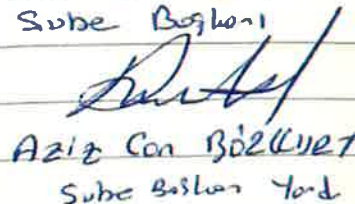 Şube Başkanı
Aziz Can BOZKURT
Şube Başkan Yard